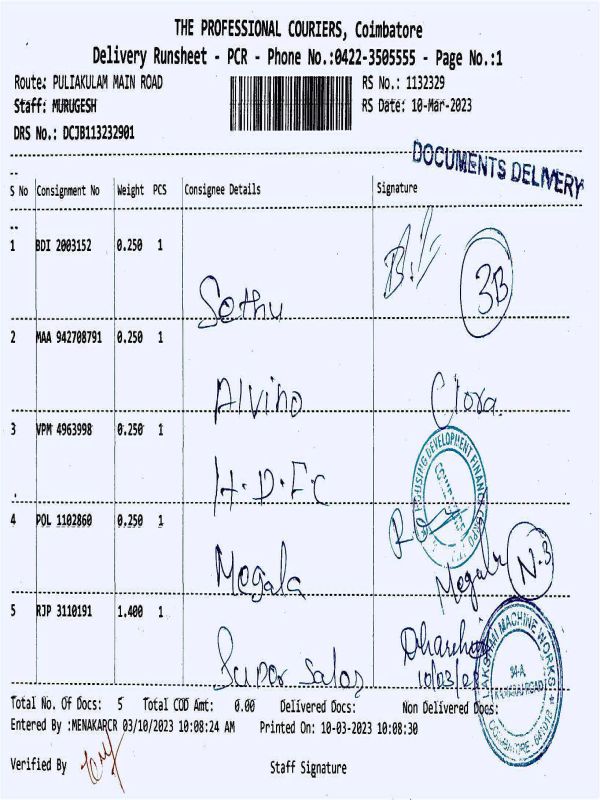 THE PROFESSIONAL COURIERS, Coimbatore
Delivery Runsheet - PCR - Phone No.:0422-3505555 - Page No.:1
Route: PULIAKULAM MAIN ROAD RS No.: 1132329
Staff: MURUGESH RS Date: 10-Mar-2023
DRS No.: DCJB113232901
DOCUMENTS DELIVERY
S No Consignment No Weight PCS Consignee Details Signature
1 BDI 2003152 0.250 1
Sethu 3B
2 MAA 942708791 0.250 1
Alvino Clora.
3 VPM 4963998 0.250 1
H.D.F.C
HOUSING DEVELOPMENT FINANCE
4 POL 1102860 0.250 1
Megala Megala N.3
5 RJP 3110191 1.400 1
Super Sales 10/03/23
LAKSHMI MACHINE WORKS
34-A
KAMARAJ ROAD
COIMBATORE - 641018
Total No. Of Docs: 5 Total COD Amt: 0.00 Delivered Docs: Non Delivered Docs:
Entered By :MENAKAPCR 03/10/2023 10:08:24 AM Printed On: 10-03-2023 10:08:30
Verified By Staff Signature